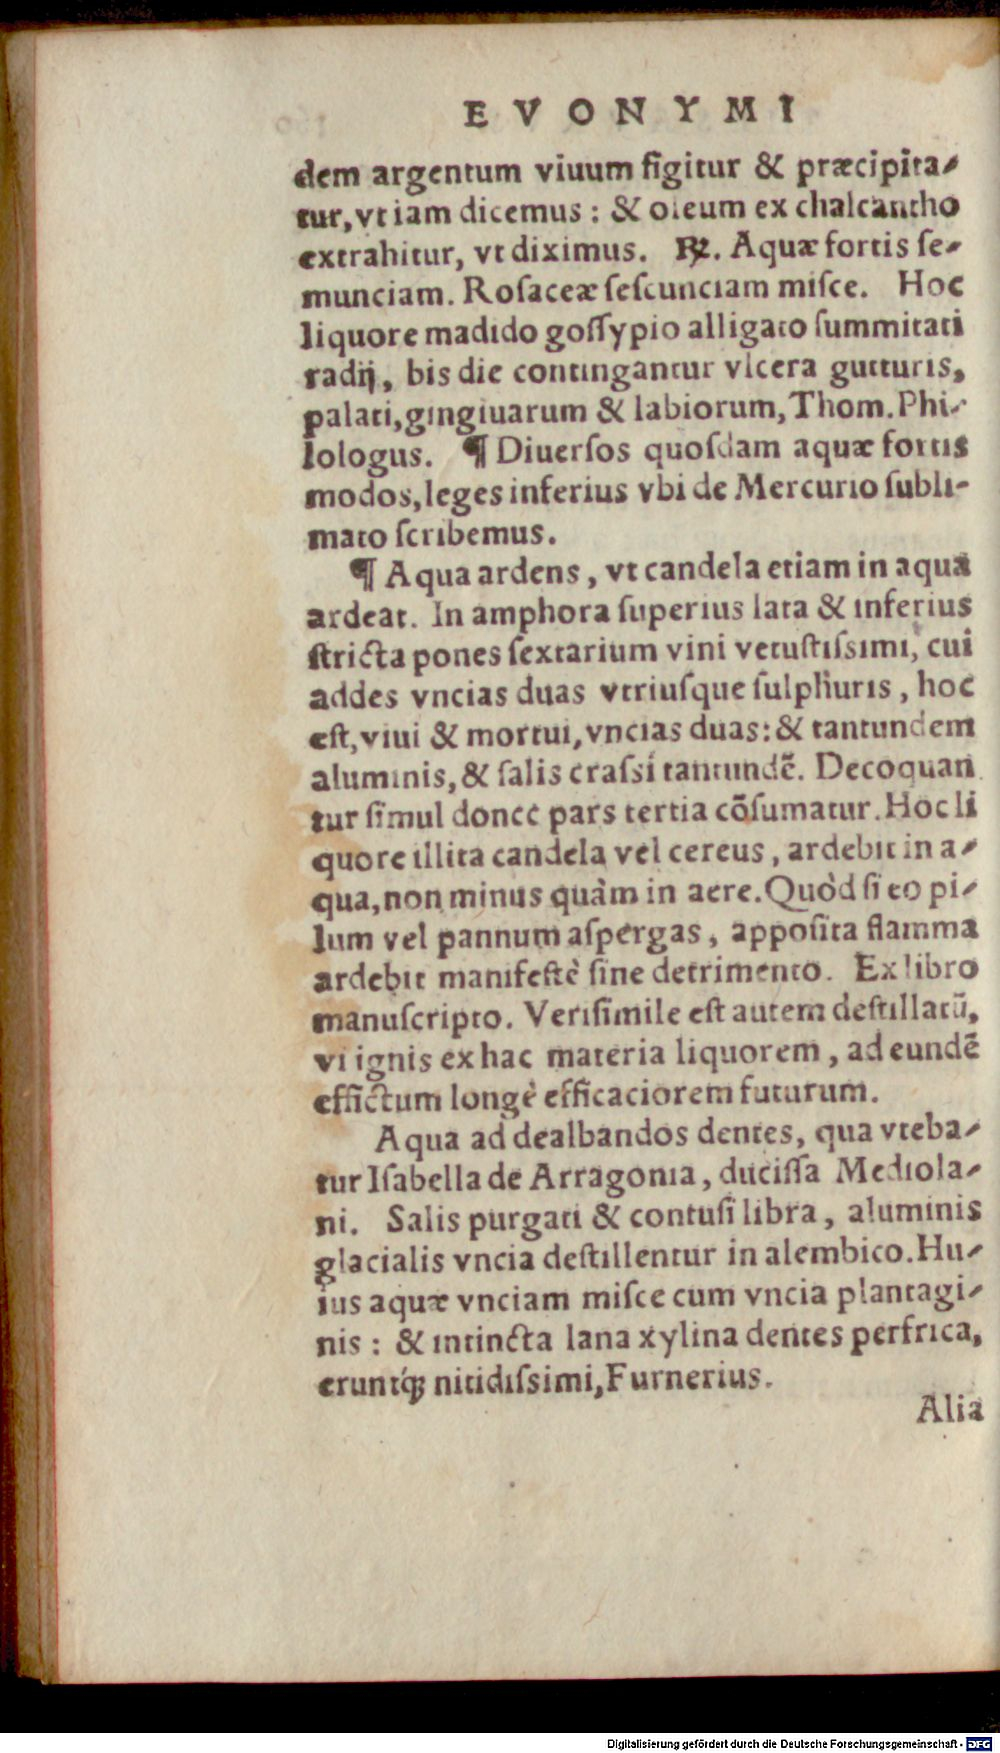 EVONYMI
dem argentum viuum figitur & præcipita-
tur, vt iam dicemus: & oleum ex chalcantho
extrahitur, vt diximus. ℞. Aquæ fortis ſe-
munciam. Roſaceæ ſeſcunciam miſce. Hoc
liquore madido goſſypio alligato ſummitati
radij, bis die contingantur vlcera gutturis,
palati, gingiuarum & labiorum, Thom. Phi-
lologus. ¶ Diuerſos quoſdam aquæ fortis
modos, leges inferius vbi de Mercurio ſubli-
mato ſcribemus.
¶ Aqua ardens, vt candela etiam in aqua
ardeat. In amphora ſuperius lata & inferius
ſtricta pones ſextarium vini vetuſtiſsimi, cui
addes vncias duas vtriuſque ſulphuris, hoc
eſt, viui & mortui, vncias duas: & tantundem
aluminis, & ſalis craſsi tantundẽ. Decoquan
tur ſimul donec pars tertia cõſumatur. Hoc li
quore illita candela vel cereus, ardebit in a-
qua, non minus quàm in aere. Quòd ſi eo pi-
lum vel pannum aſpergas, appoſita flamma
ardebit manifeſtè ſine detrimento. Ex libro
manuſcripto. Veriſimile eſt autem deſtillatũ,
vi ignis ex hac materia liquorem, ad eundẽ
effictum longè efficaciorem futurum.
Aqua ad dealbandos dentes, qua vteba-
tur Iſabella de Arragonia, duciſſa Mediola-
ni. Salis purgati & contuſi libra, aluminis
glacialis vncia deſtillentur in alembico. Hu-
ius aquæ vnciam miſce cum vncia plantagi-
nis: & intincta lana xylina dentes perfrica,
eruntq́; nitidiſsimi, Furnerius.
Alia
Digitalisierung gefördert durch die Deutsche Forschungsgemeinschaft - DFG